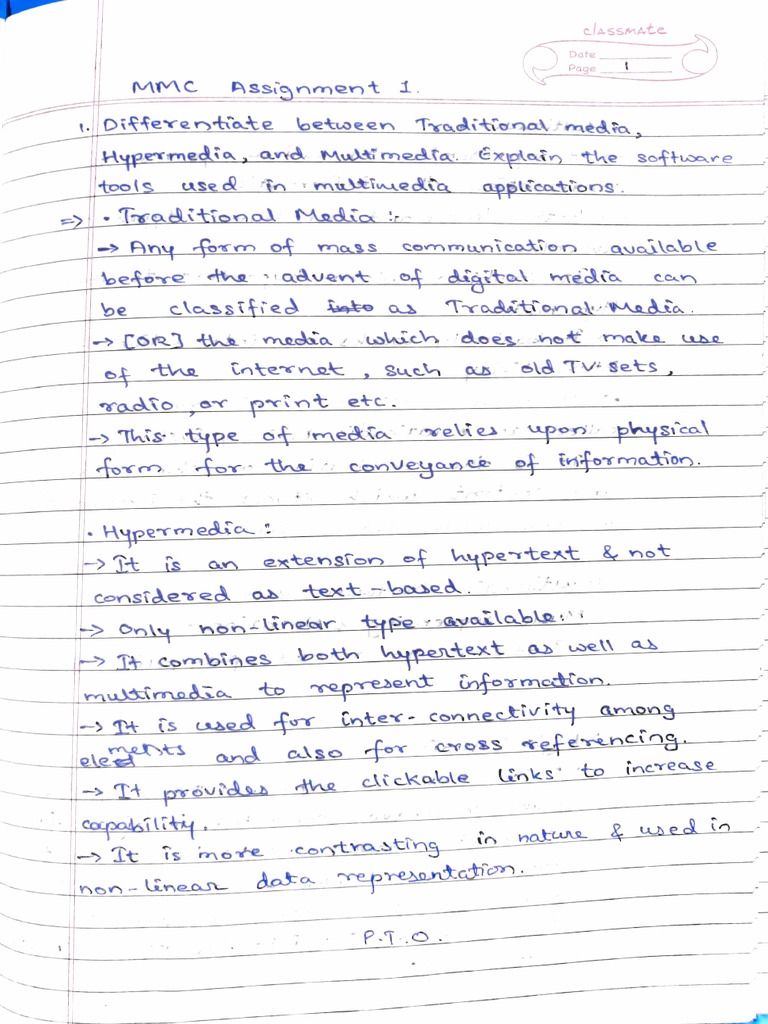 classmate
Date
Page 1
MMC Assignment 1.
1. Differentiate between Traditional media,
Hypermedia, and Multimedia. Explain the software
tools used in multimedia applications.
=> • Traditional Media :-
→ Any form of mass communication available
before the advent of digital media can
be classified into as Traditional Media.
→ [OR] the media which does not make use
of the internet, such as old TV sets,
radio, or print etc.
→ This type of media relies upon physical
form for the conveyance of information.
• Hypermedia :
→ It is an extension of hypertext & not
considered as text-based.
→ Only non-linear type available.
→ It combines both hypertext as well as
multimedia to represent information.
→ It is used for inter-connectivity among
elements and also for cross referencing.
→ It provides the clickable links to increase
capability.
→ It is more contrasting in nature & used in
non-linear data representation.
P.T.O.